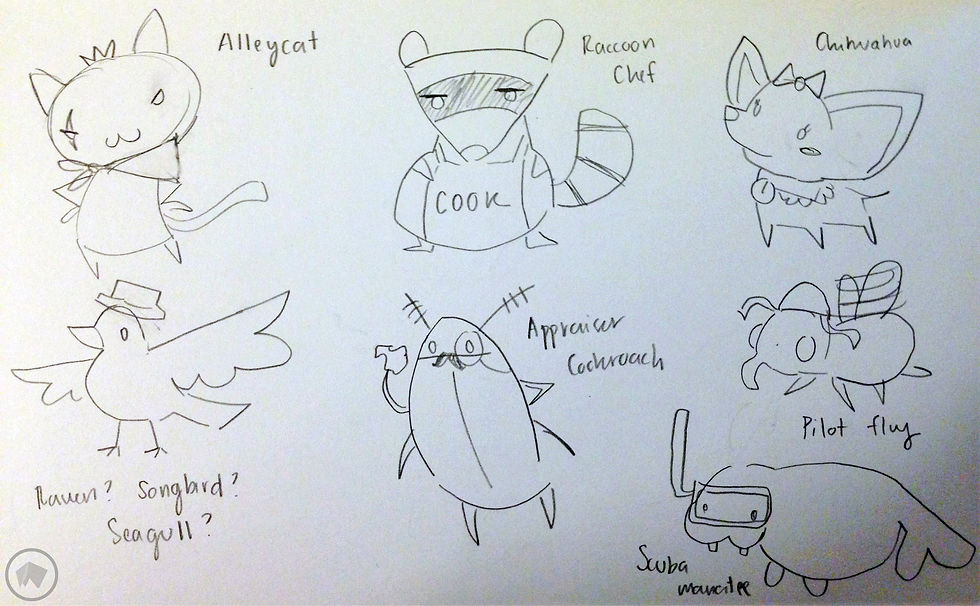 Alleycat
Raccoon
Chef
Chihuahua
COOK
Appraiser
Cockroach
Pilot flug
Raven? Songbird?
Seagull?
Scuba
manatee